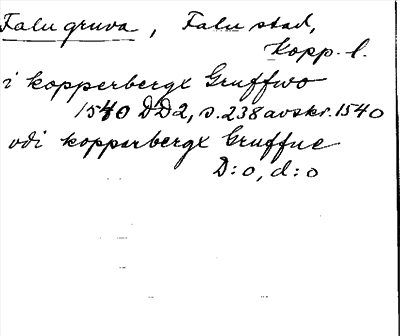 Falu gruva, Falu stad,
Kopp. l.
i kopperbergx Gruffwo
1540 DD2, s. 238 avskr. 1540
vdi kopparbergx Gruffue
D:o, d:o